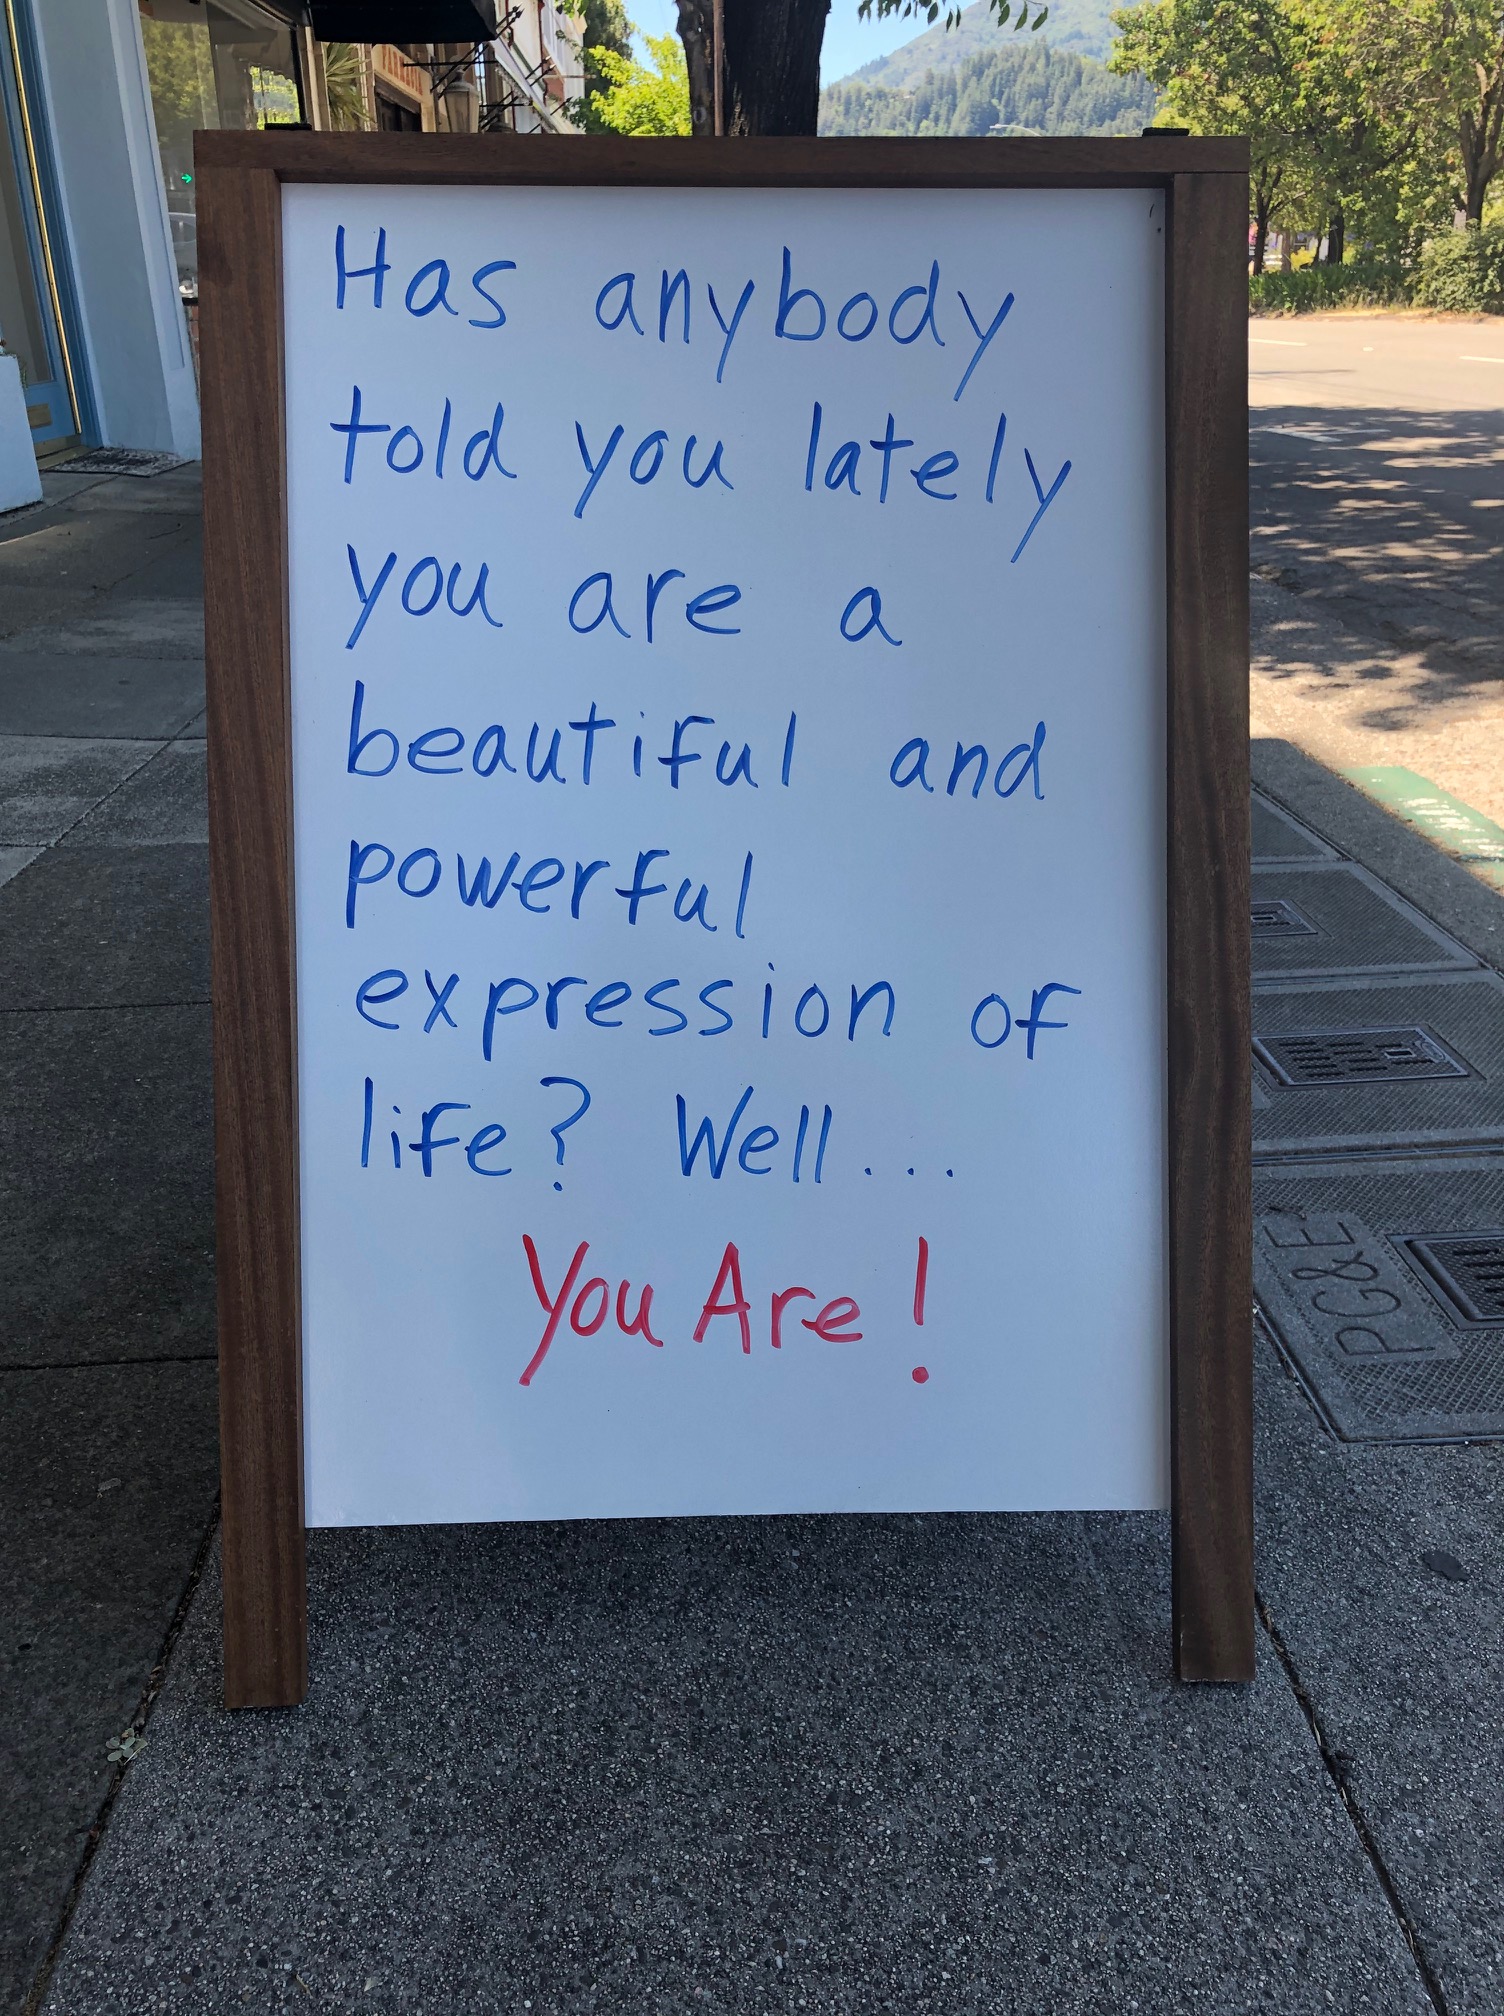 Has anybody
told you lately
you are a
beautiful and
powerful
expression of
life? Well....
You Are!
PG&E